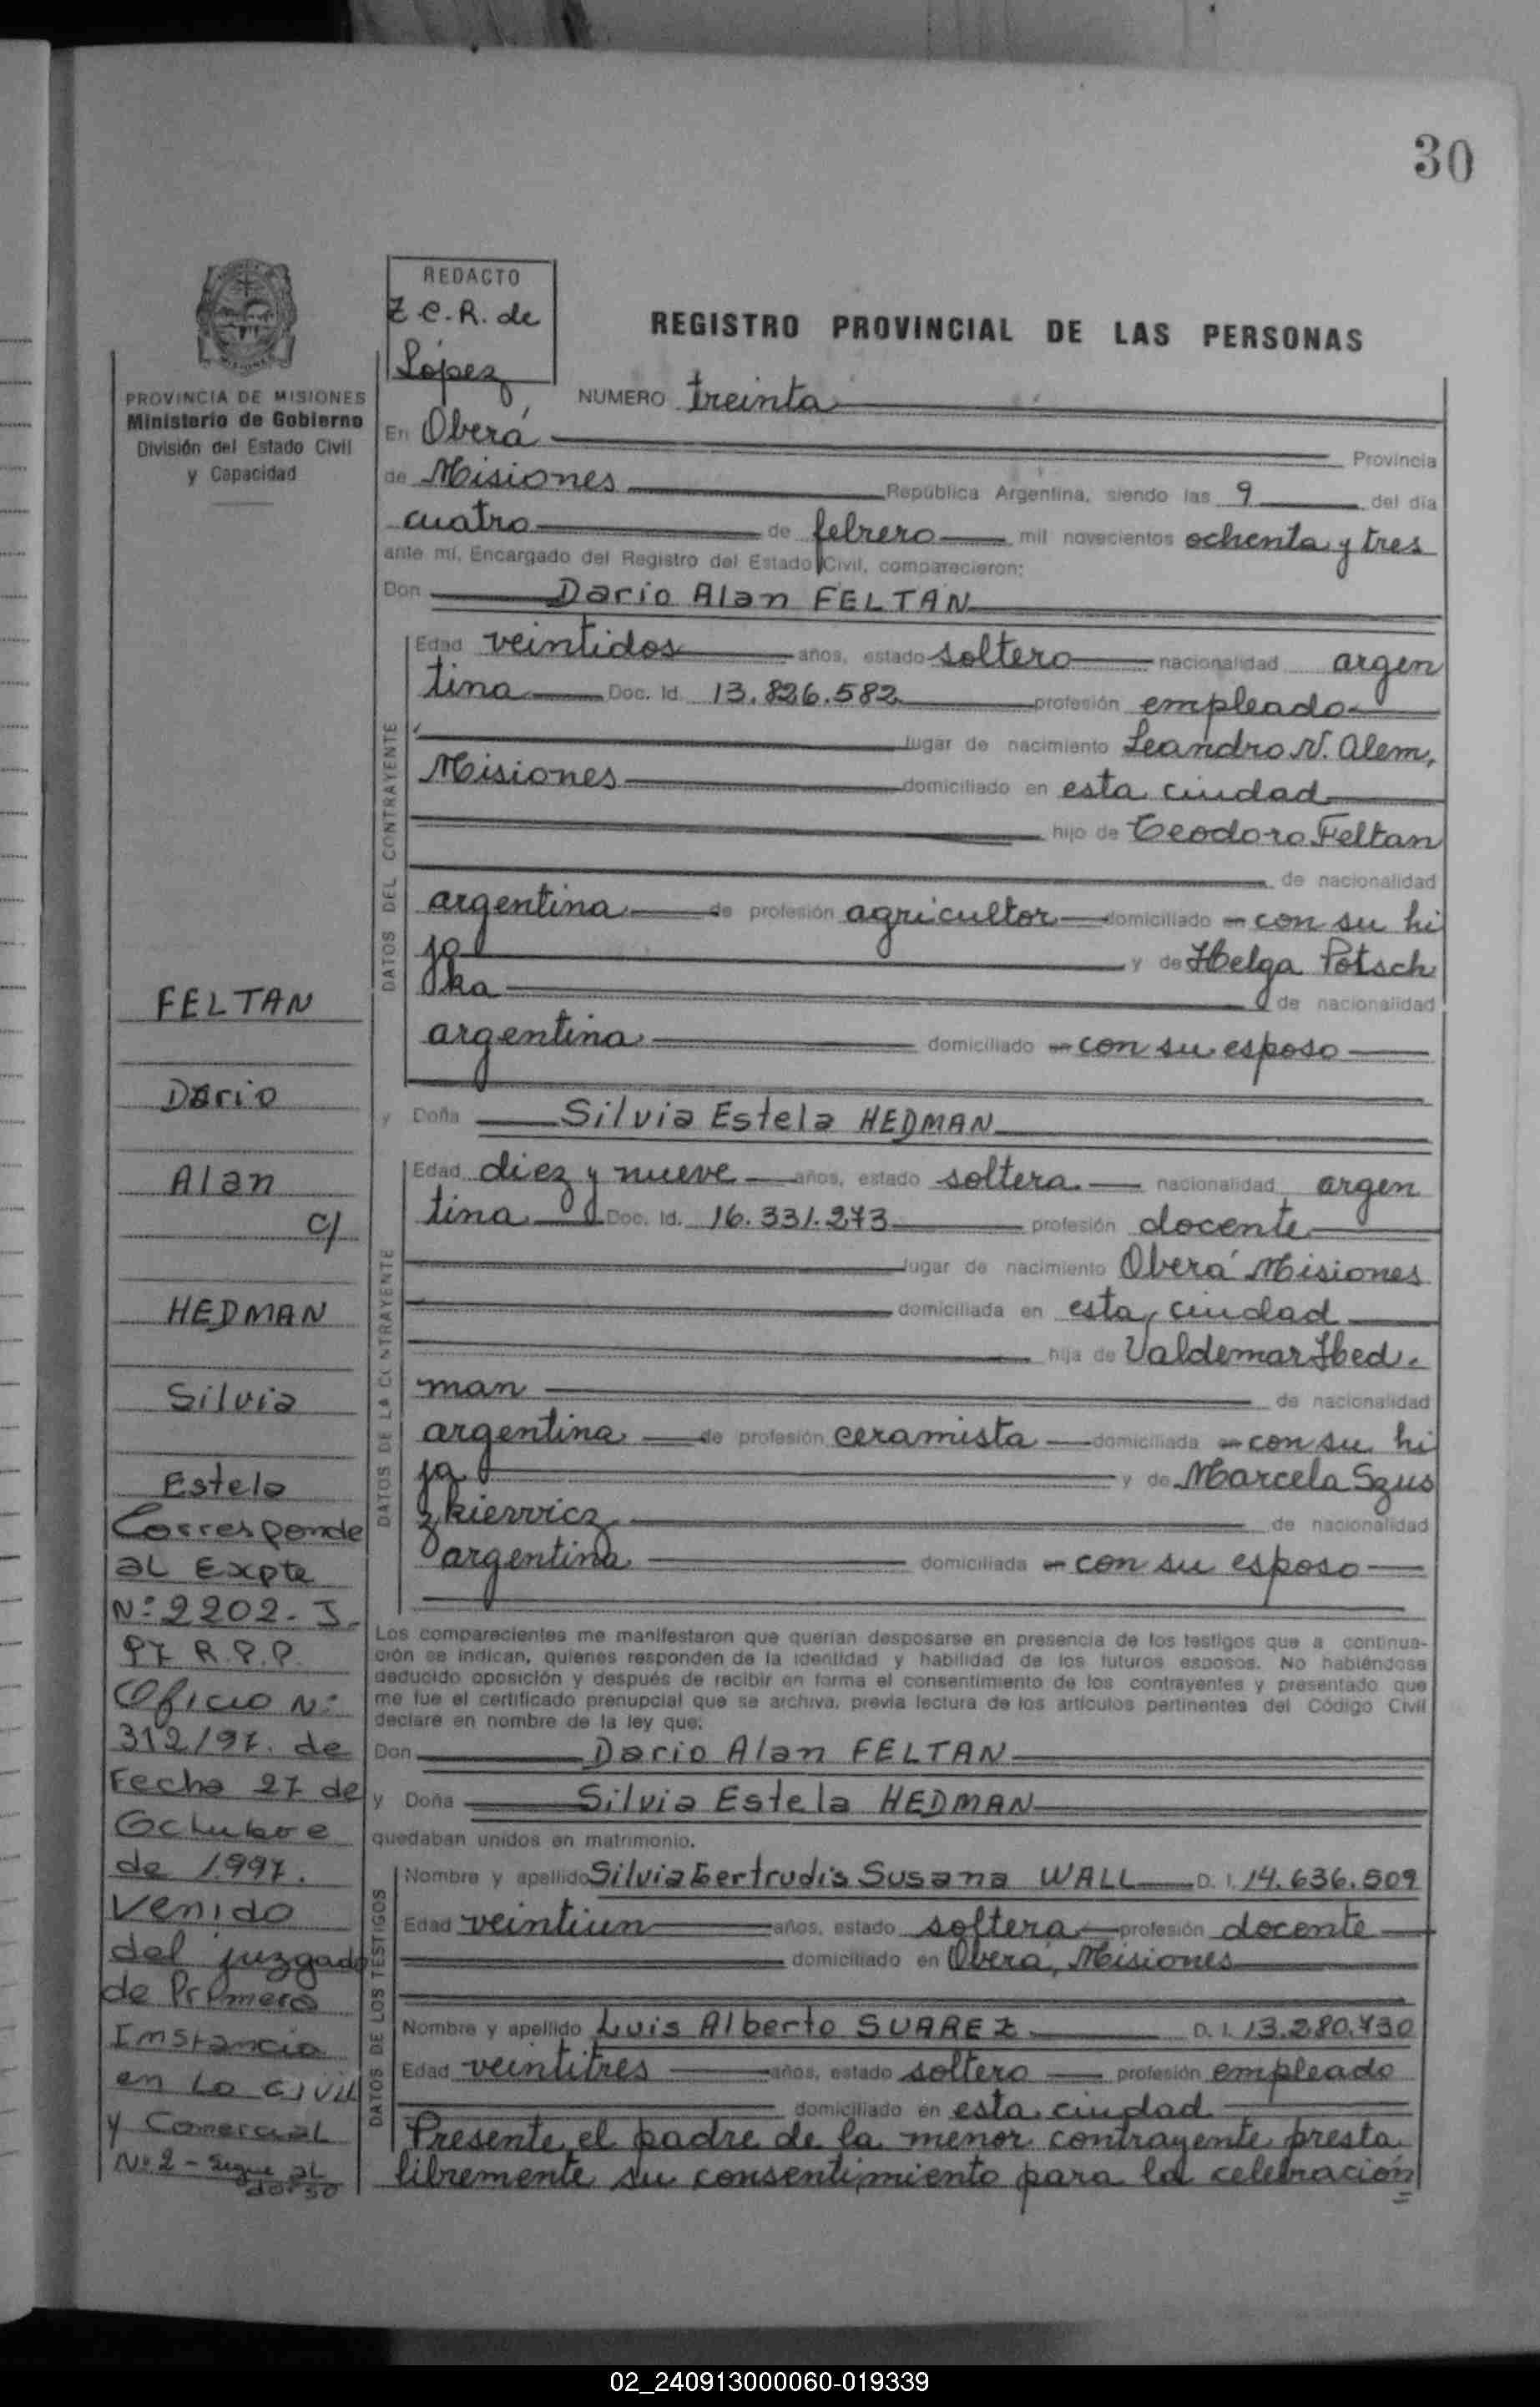 30
REDACTO
Z C. R. de
López
REGISTRO PROVINCIAL DE LAS PERSONAS
PROVINCIA DE MISIONES
Ministerio de Gobierno
División del Estado Civil
y Capacidad
NUMERO treinta
En Oberá Provincia
de Misiones República Argentina, siendo las 9 del día
cuatro de febrero mil novecientos ochenta y tres
ante mí, Encargado del Registro del Estado Civil, comparecieron:
Don Dario Alan FELTAN
DATOS DEL CONTRAYENTE
Edad veintidos años, estado soltero nacionalidad argen
tina Doc. Id. 13.826.582 profesión empleado
lugar de nacimiento Leandro N. Alem,
Misiones domiciliado en esta ciudad
hijo de Teodoro Feltan
de nacionalidad
argentina de profesión agricultor domiciliado con su hi
jo y de Helga Potsch
ka de nacionalidad
argentina domiciliado con su esposo
y Doña Silvia Estela HEDMAN
DATOS DE LA CONTRAYENTE
Edad diez y nueve años, estado soltera nacionalidad argen
tina Doc. Id. 16.331.273 profesión docente
lugar de nacimiento Oberá Misiones
domiciliada en esta ciudad
hija de Valdemar Hed-
man de nacionalidad
argentina de profesión ceramista domiciliada con su hi
ja y de Marcela Szus
zkiewicz de nacionalidad
argentina domiciliada con su esposo
Los comparecientes me manifestaron que querían desposarse en presencia de los testigos que a continua-
ción se indican, quienes responden de la identidad y habilidad de los futuros esposos. No habiéndose
deducido oposición y después de recibir en forma el consentimiento de los contrayentes y presentado que
me fue el certificado prenupcial que se archiva, previa lectura de los artículos pertinentes del Código Civil
declare en nombre de la ley que:
Don Dario Alan FELTAN
y Doña Silvia Estela HEDMAN
quedaban unidos en matrimonio.
DATOS DE LOS TESTIGOS
Nombre y apellido Silvia Gertrudis Susana WALL D. I. 14.636.509
Edad veintiun años, estado soltera profesión docente
domiciliado en Oberá, Misiones
Nombre y apellido Luis Alberto SUAREZ D. I. 13.280.430
Edad veintitres años, estado soltero profesión empleado
domiciliado en esta ciudad
Presente el padre de la menor contrayente presta
libremente su consentimiento para la celebración
FELTAN
Dario
Alan
c/
HEDMAN
Silvia
Estela
Corresponde
al Expte
Nº 2202-J-
97 R.P.P.
Oficio Nº
312/97. de
Fecha 27 de
Octubre
de 1997.
Venido
del juzgado
de Primera
Instancia
en Lo Civil
y Comercial
Nº 2 - Sigue al
dorso
02_240913000060-019339